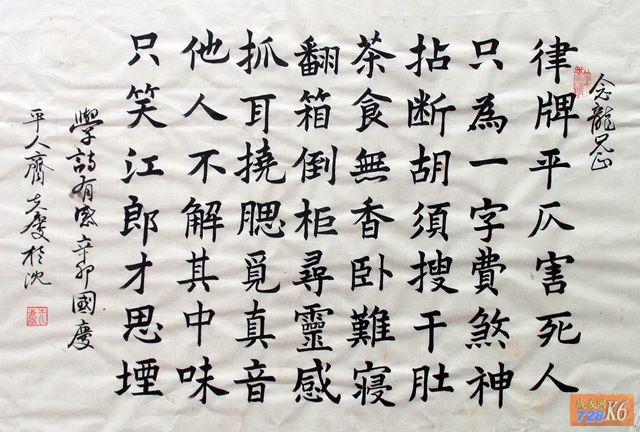 念龍兄正
律牌平仄害死人
只為一字費煞神
拈断胡須搜干肚
茶食無香卧難寢
翻箱倒柜尋靈感
抓耳撓腮覓真音
他人不解其中味
只笑江郎才思堙
學詩有感辛卯國慶
平人齋慶於沈
战友网
728 K6